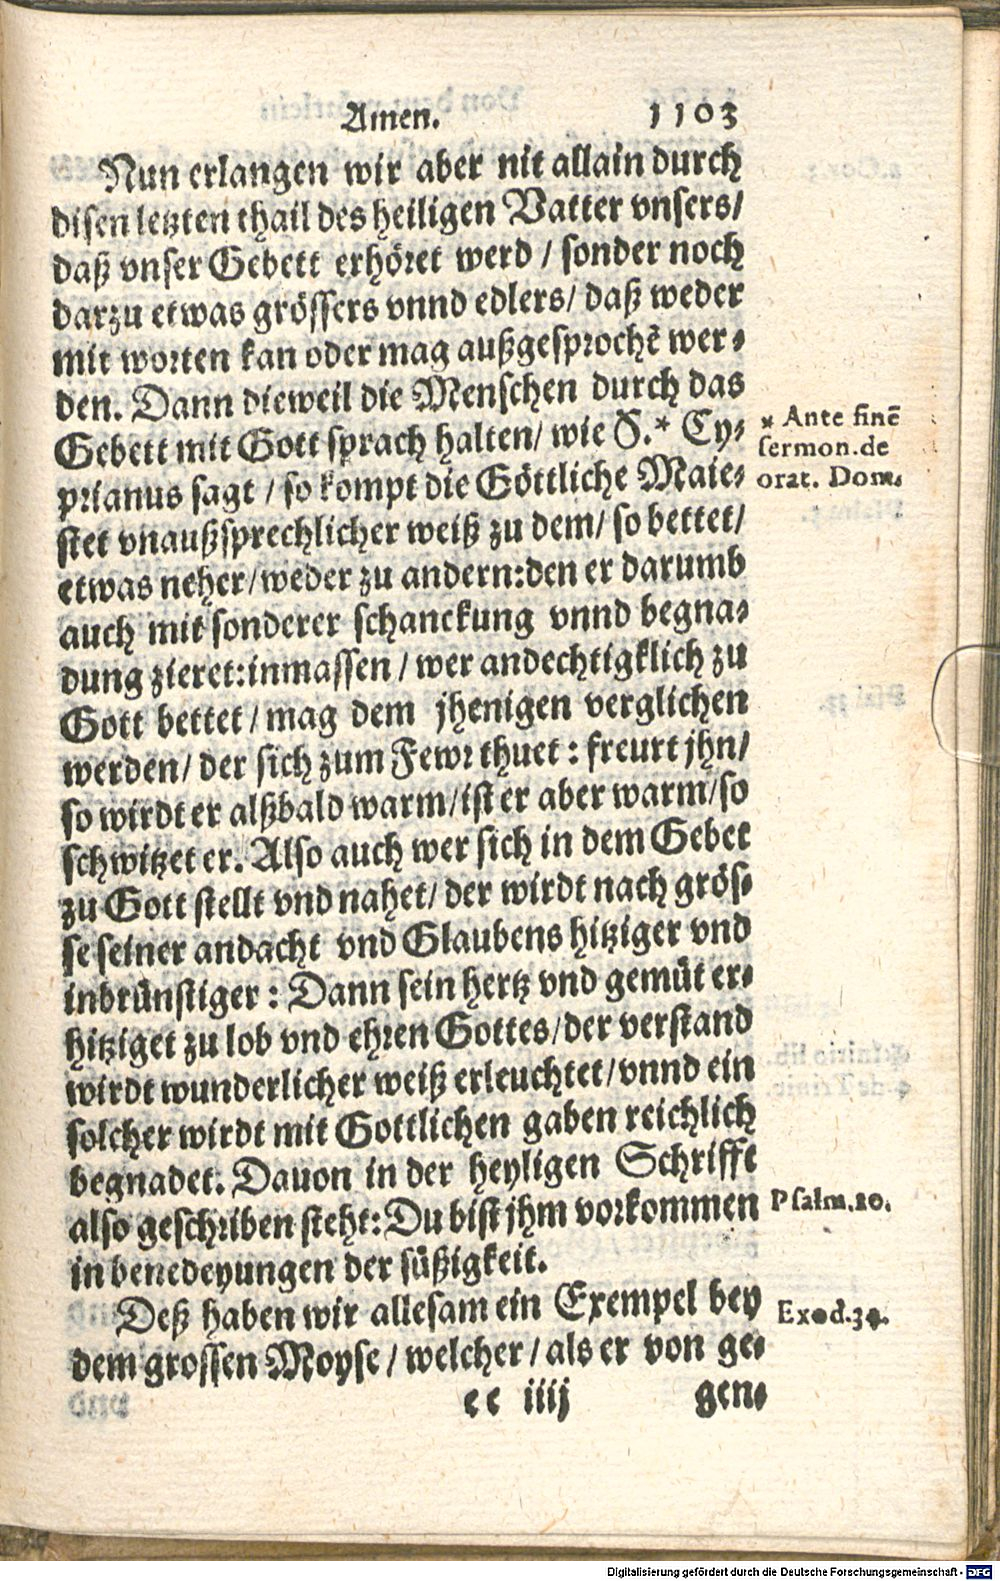 Amen. 1103
Nun erlangen wir aber nit allain durch
disen letzten thail des heiligen Vatter vnsers/
daß vnser Gebett erhöret werd / sonder noch
darzu etwas grössers vnnd edlers/ daß weder
mit worten kan oder mag außgesprochē wer-
den. Dann dieweil die Menschen durch das
Gebett mit Gott sprach halten/ wie S.* Cy-
prianus sagt / so kompt die Göttliche Maie-
stet vnaußsprechlicher weiß zu dem/ so bettet/
etwas neher/weder zu andern:den er darumb
auch mit sonderer schanckung vnnd begna-
dung zieret:inmassen / wer andechtigklich zu
Gott bettet/ mag dem jhenigen verglichen
werden/ der sich zum Fewr thuet : freurt jhn/
so wirdt er alßbald warm/ist er aber warm/so
schwitzet er. Also auch wer sich in dem Gebet
zu Gott stellt vnd nahet/ der wirdt nach grös-
se seiner andacht vnd Glaubens hitziger vnd
inbrünstiger : Dann sein hertz vnd gemüt er-
hitziget zu lob vnd ehren Gottes/der verstand
wirdt wunderlicher weiß erleuchtet/vnnd ein
solcher wirdt mit Gottlichen gaben reichlich
begnadet. Dauon in der heyligen Schrifft
also geschriben steht:Du bist jhm vorkommen
in benedeyungen der süßigkeit.
Deß haben wir allesam ein Exempel bey
dem grossen Moyse / welcher / als er von ge-
ee iiij gen-
* Ante finē
sermon.de
orat. Dom.
Psalm.20.
Exod.34.
Digitalisierung gefördert durch die Deutsche Forschungsgemeinschaft - DFG